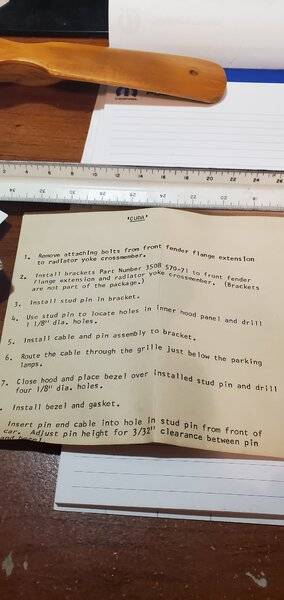 'CUDA'
1. Remove attaching bolts from front fender flange extension
to radiator yoke crossmember.
2. Install brackets Part Number 3508 570-71 to front fender
flange extension and radiator yoke crossmember. (Brackets
are not part of the package.)
3. Install stud pin in bracket.
4. Use stud pin to locate holes in inner hood panel and drill
1 1/8" dia. holes.
5. Install cable and pin assembly to bracket.
6. Route the cable through the grille just below the parking
lamps.
7. Close hood and place bezel over installed stud pin and drill
four 1/8" dia. holes.
Install bezel and gasket.
Insert pin end cable into hole in stud pin from front of
car. Adjust pin height for 3/32" clearance between pin
and bezel